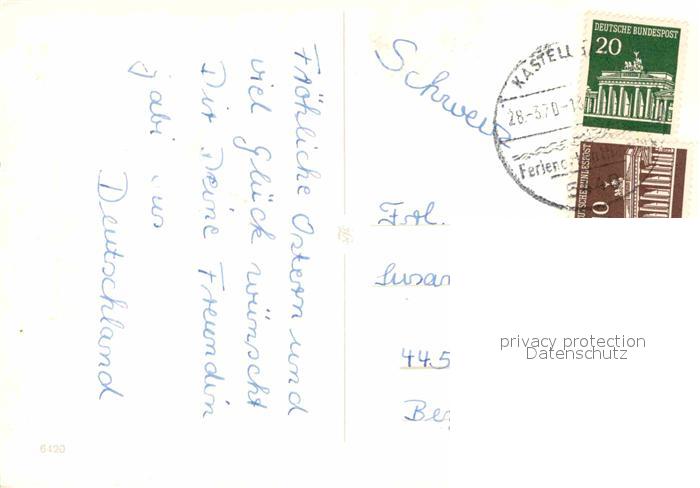 Fröhliche Ostern und
viel Glück wünscht
Dir Deine Freundin
Gabi aus
Deutschland
Schweiz
Frl.
Susan
44.5
Be
privacy protection
Datenschutz
DEUTSCHE BUNDESPOST
20
DEUTSCHE BUNDESPOST
KASTELL
28.-3.70.-18
Ferien
6420